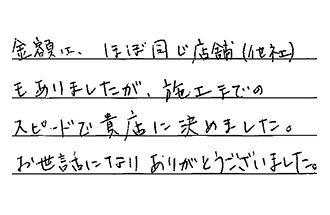 金額は、ほぼ同じ店舗(他社)
もありましたが、施工までの
スピードで貴店に決めました。
お世話になりありがとうございました。